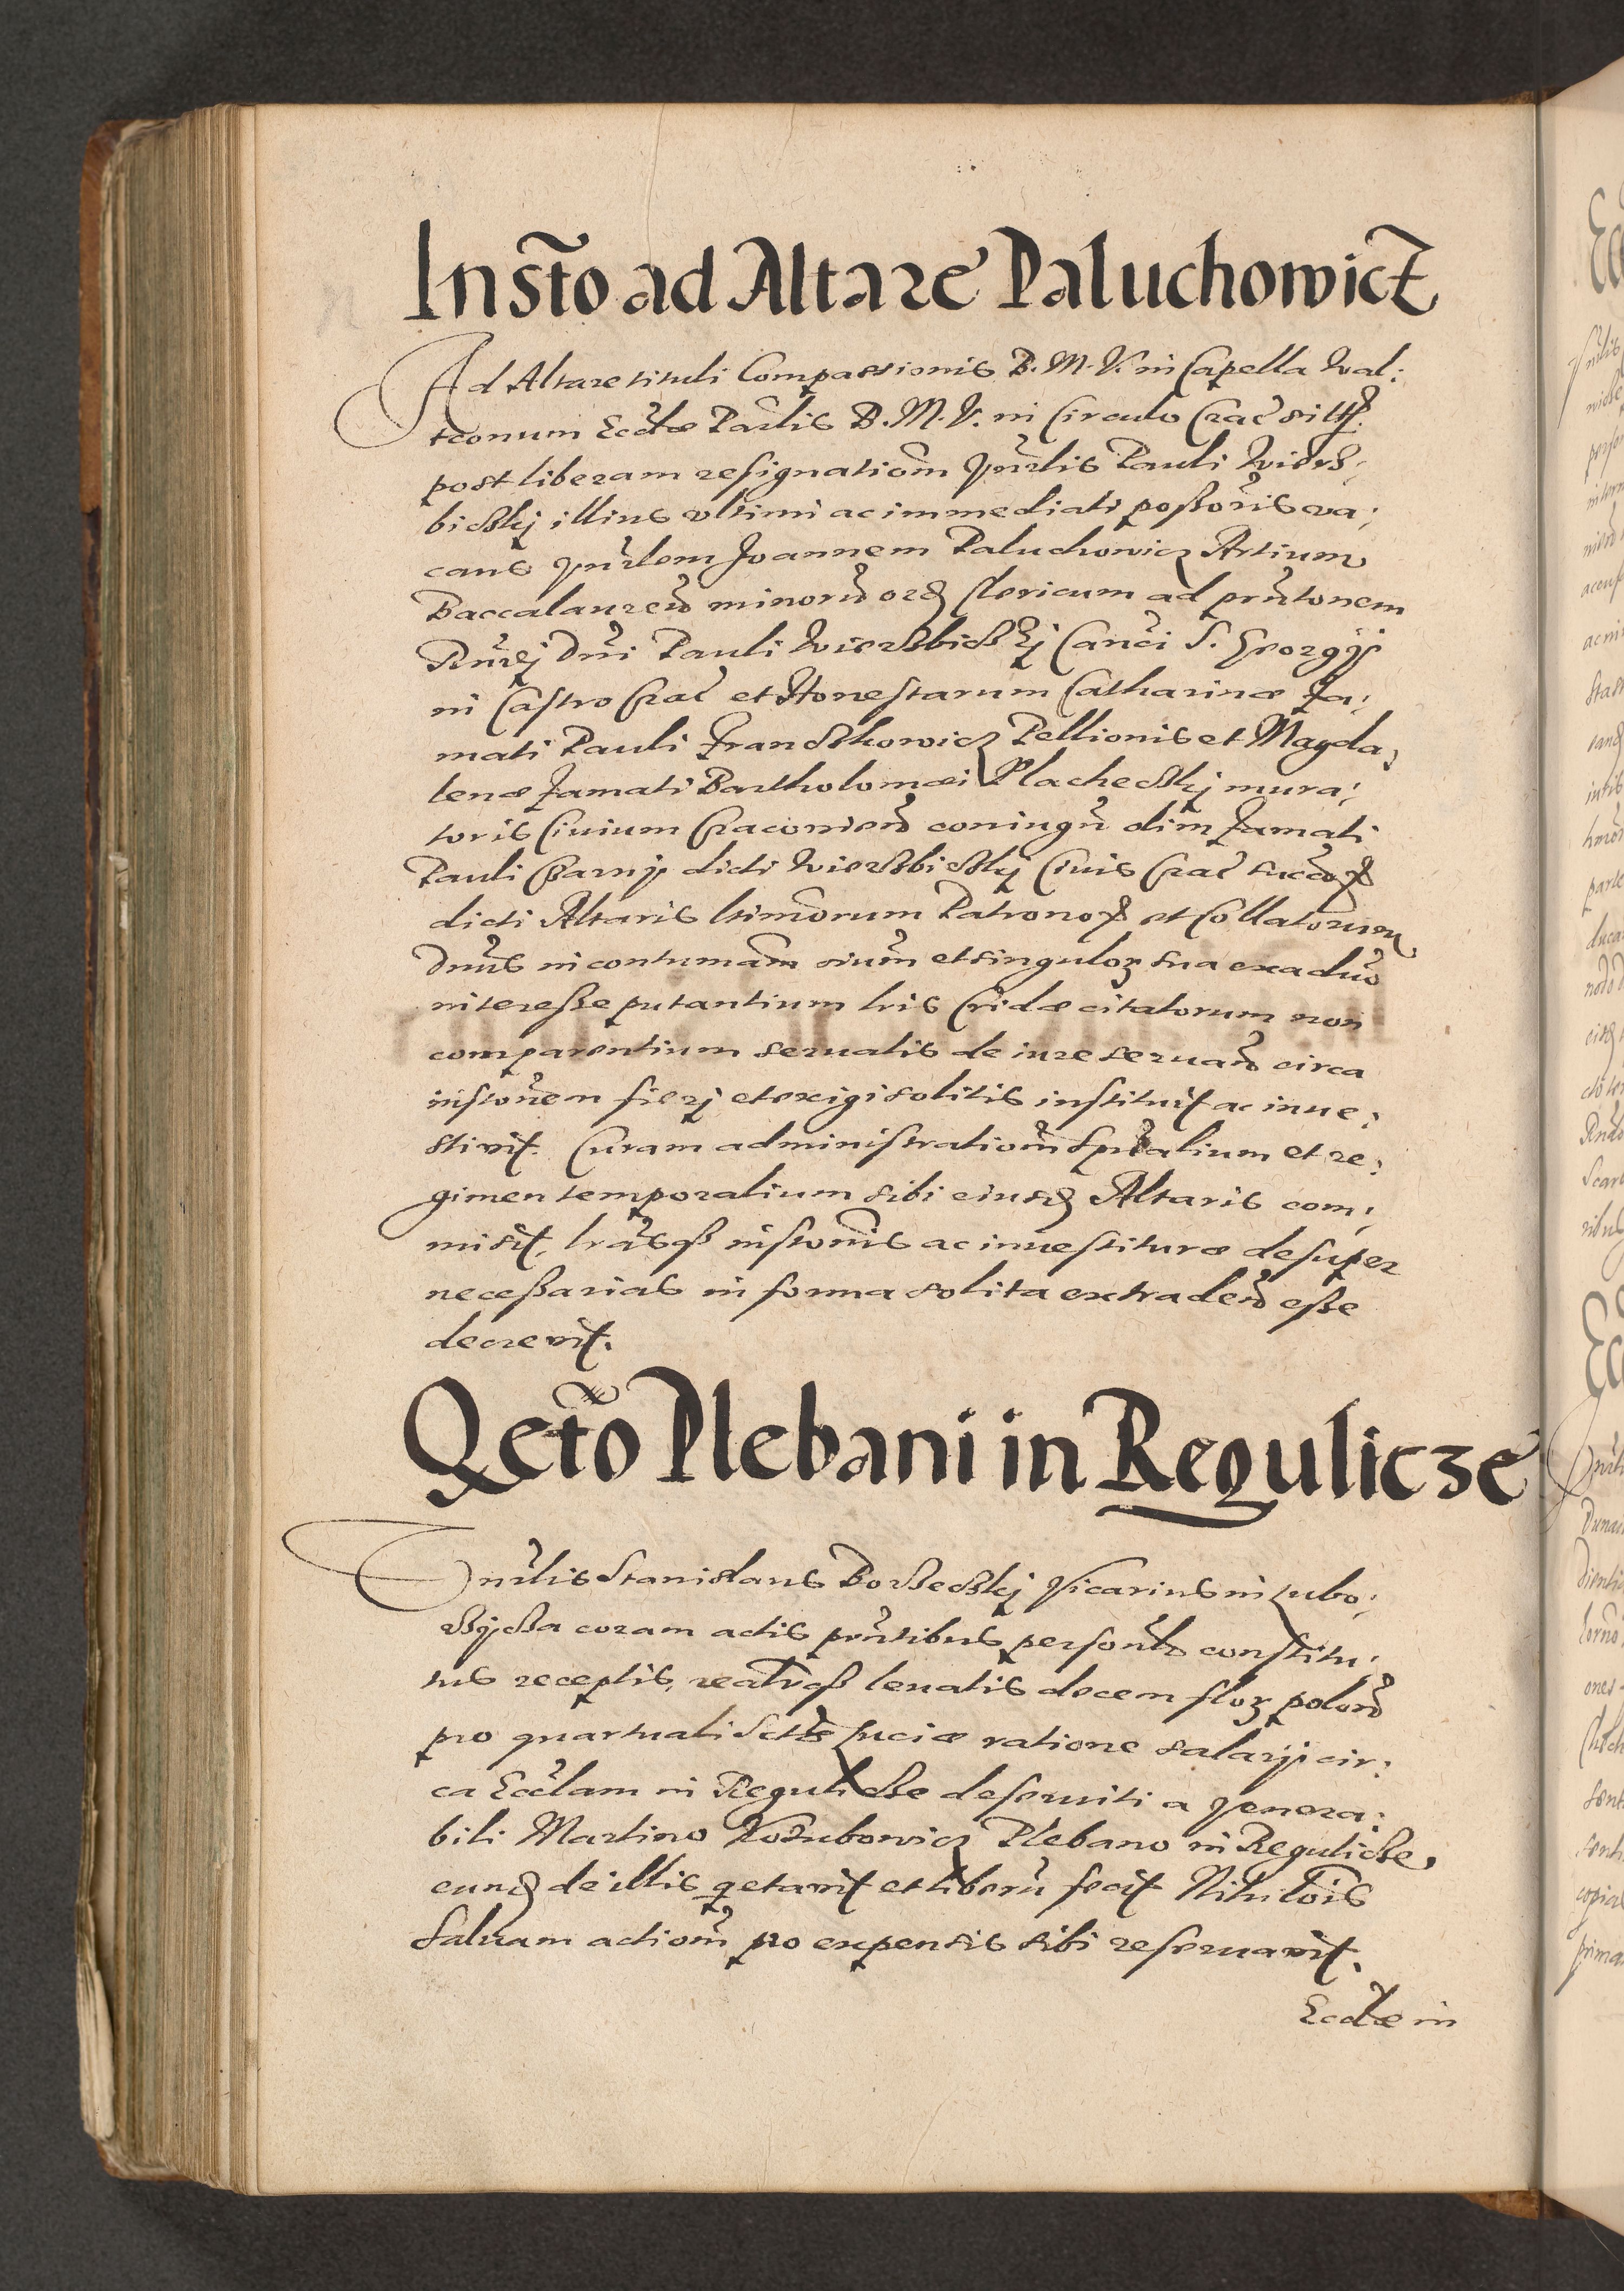 Insto ad Altare Paluchowicz
Ad Altare tituli Compassionis B. M. V. in Capella Wal:
teonum Eccłæ Parlis B. M. V. in Circulo Crac sitt
post liberam resignationm Vnrlis Pauli Wiers:
biczkij illius vltimi ac immediati poßoris va:
cans Vnrlem Joannem Paluchowicz Artium
Baccalaureu minoru ord clericum ad prntonem
Rnrej Dni Pauli Wierzbiczkij Canci S. Georgij
in Castro Crac et Honestarum Catharinæ Fa:
mati Pauli Franczkowicz Pellionis et Magda:
lenæ Famati Bartholomæi Placheczkij mura:
toris Ciuium Cracouien coniugu olim Famati
Pauli Czarnij dicti Wierzbiczkij Ciuis Crac succorum
dicti Altaris ltimorum Patronorum et Collatorum
Dnus in contumam oium et singulorum sua exaduo
intereße putantium lris Cridæ citatorum non
comparentium seruatis de iure seruand circa
instonem fierj et exigi solitis instituit ac inue:
stiuit. Curam administrationm Spualium et re:
gimen temporalium sibi eiusd Altaris com:
misit, lrasq instonis ac inuestituræ desuper
neceßarias in forma solita extradend eße
decreuit.
Qcto Plebani in Regulicze
Vnrlis Stanislaus Borzeczkij Vicarius in Lubo:
rzijcza coram actis prntibus personlr constitu:
tus receptis, realrq leuatis decem flor polon
pro quartuali Sctæ Luciæ ratione salarij cir:
ca Ecclam in Regulicze deseruiti a Venera:
bili Martino Kozubowicz Plebano in Regulicze,
eund de illis qetauit et liberu fecit Nihilois
saluam actionm pro expensis sibi reseruauit.
Eccłæ in